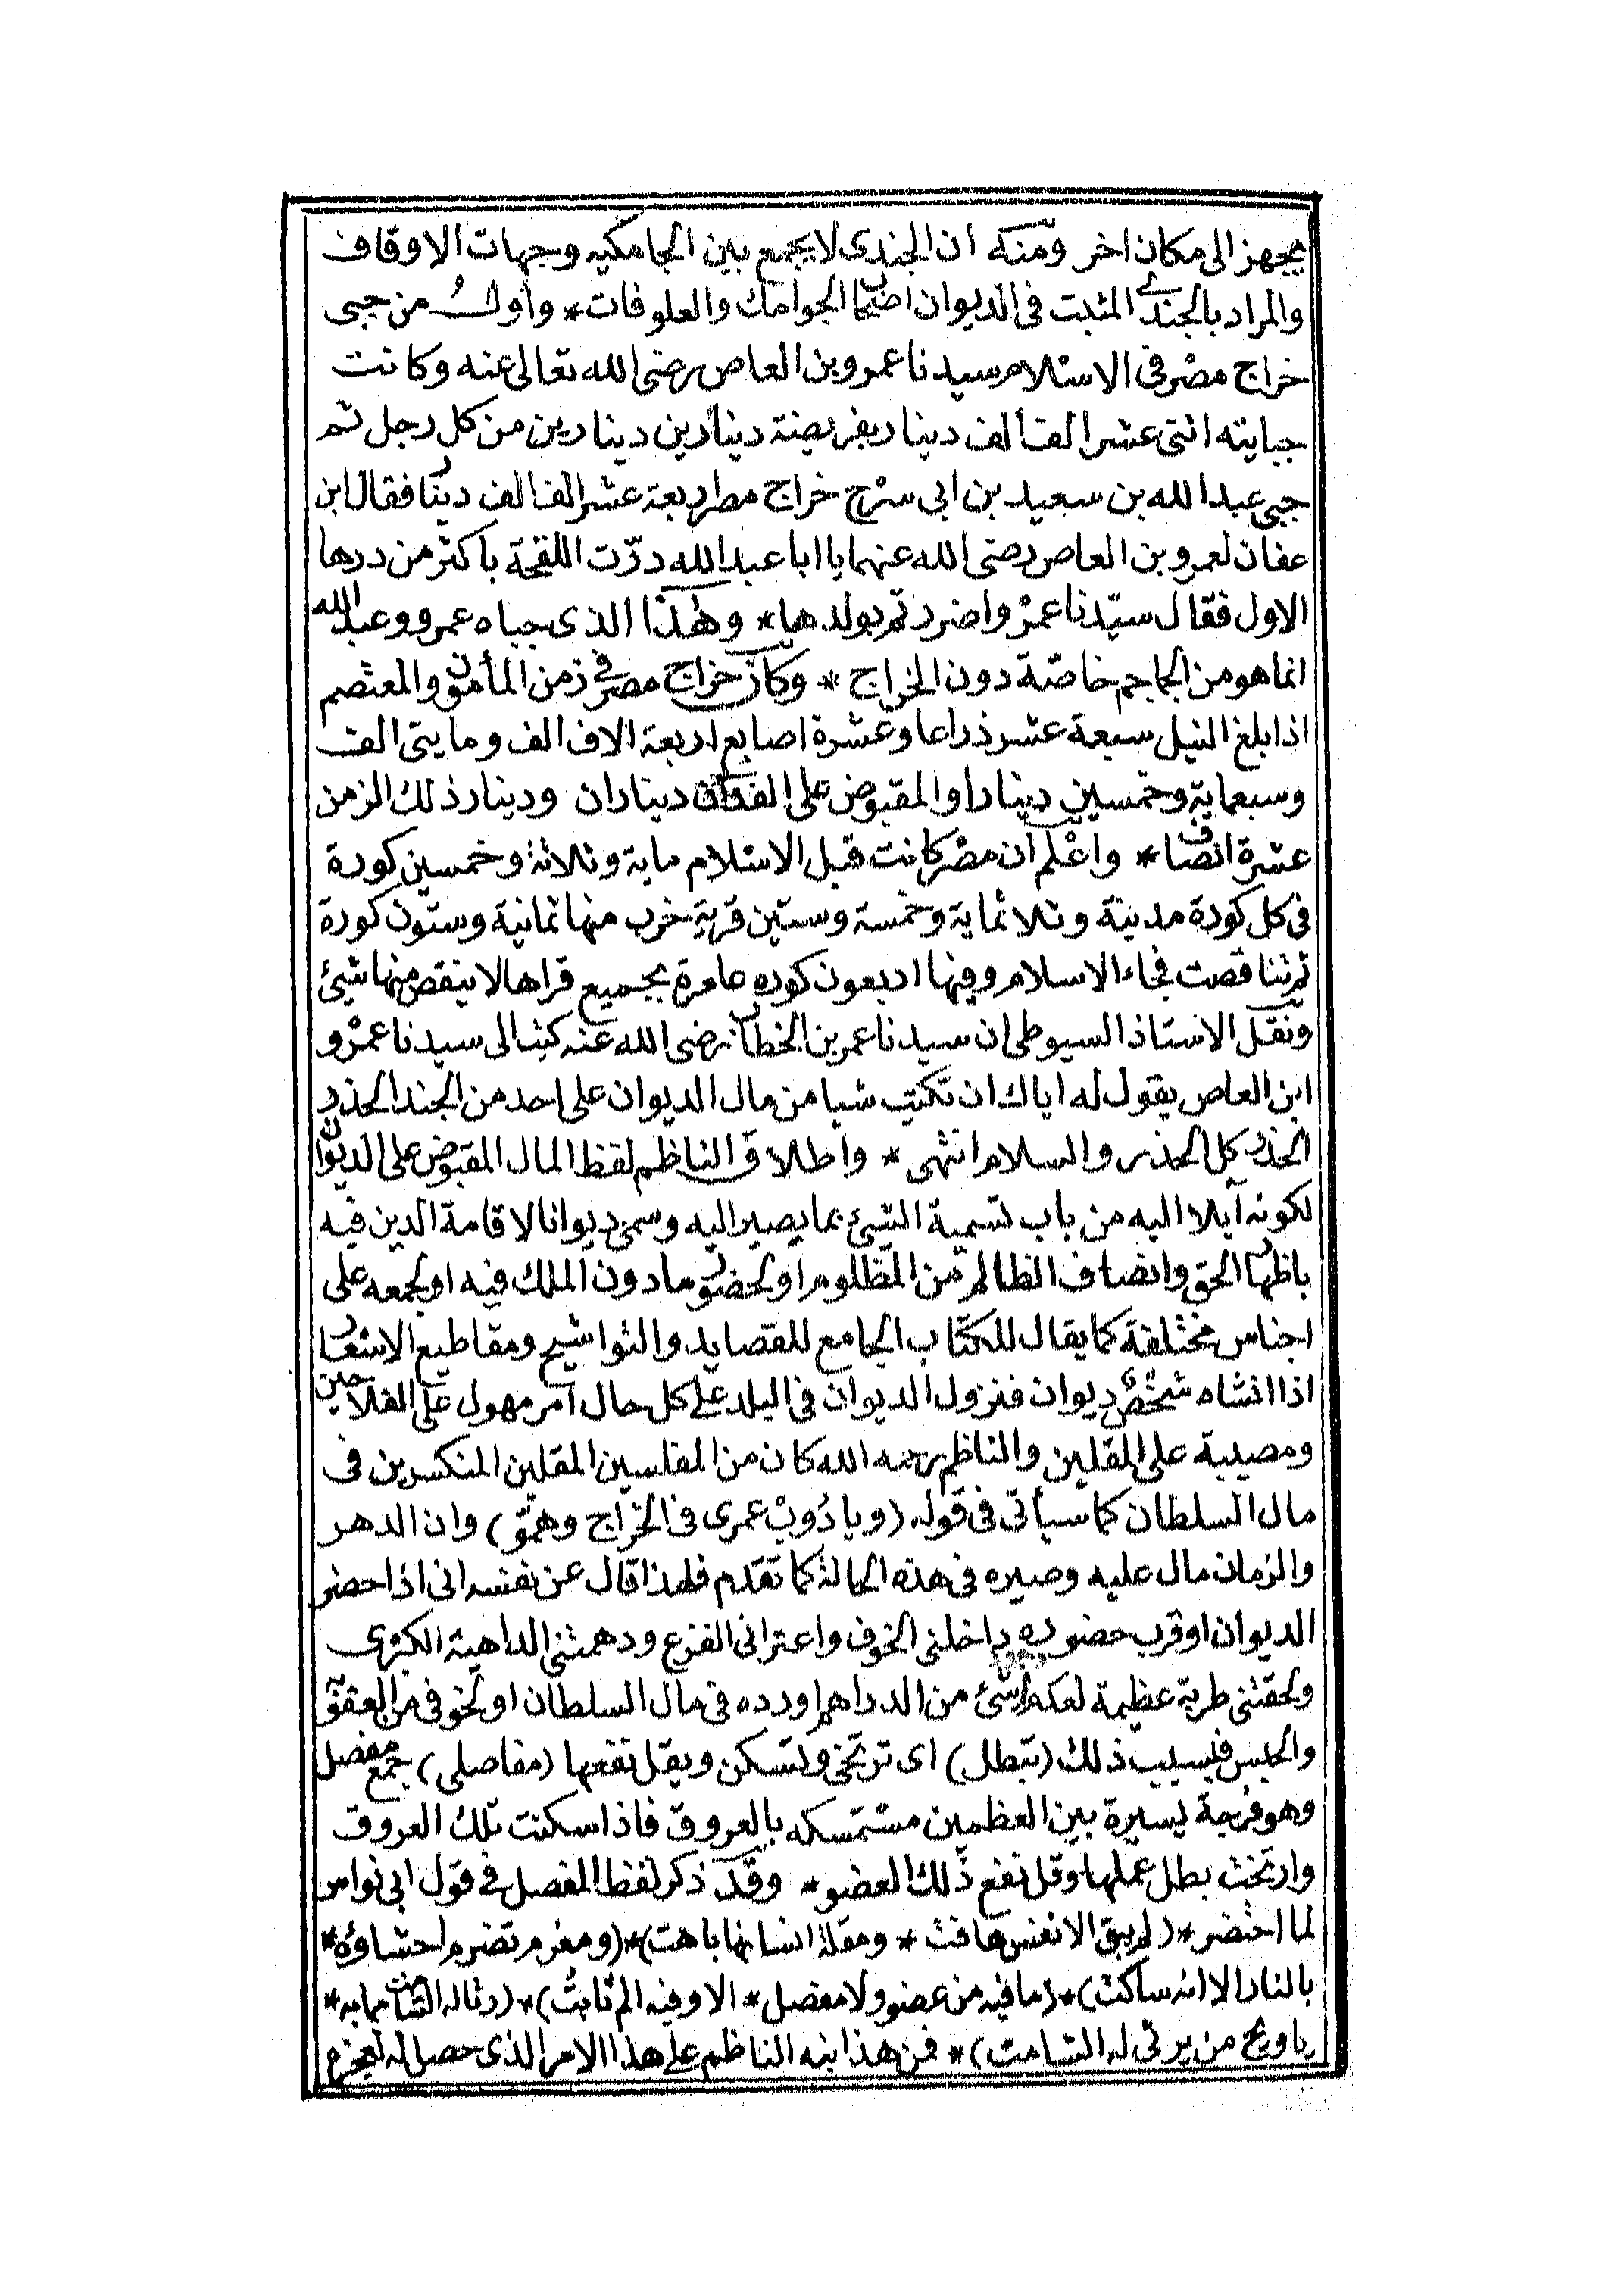 يجهز الى مكان اخر ومنه ان الجندى لا يجمع بين الجامكيه وجهات الاوقاف
والمراد بالجندى المثبت فى الديوان اصحاب الجوامك والعلوفات * واول من جبى
خراج مصر فى الاسلام سيدنا عمرو بن العاص رضى الله تعالى عنه وكانت
جبايته اثنى عشر الف الف دينار بفريضة دينارين دينارين من كل رجل ثم
جبى عبد الله بن سعيد بن ابى سرح خراج مصر اربعة عشر الف الف دينار فقال ابن
عفان لعمرو بن العاص رضى الله عنهما يا ابا عبد الله درّت اللقحة باكثر من درها
الاول فقال سيّدنا عمرو اضررتم بولدها * وهذا الذى جباه عمرو وعبد الله
انما هو من الجماجم خاصّة دون الخراج * وكان خراج مصر فى زمن المأمون والمعتصم
اذا بلغ النيل سبعة عشر ذراعا وعشرة اصابع اربعة الاف الف ومايتى الف
وسبعماية وخمسين دينارا والمقبوض على الفدان ديناران ودينار ذلك الزمن
عشرة انصاف * واعلم ان مصر كانت قبل الاسلام ماية وثلاثة وخمسين كورة
فى كل كورة مدينة وثلاثماية وخمسة وستين قرية خرب منها ثمانية وستون كورة
ثم تناقصت فجاء الاسلام وفيها اربعون كوره عامرة بجميع قراها لا ينقص منها شيئ
ونقل الاستاذ السيوطى ان سيدنا عمر بن الخطاب رضى الله عنه كتب الى سيدنا عمرو
ابن العاص يقول له اياك ان تكتب شيا من مال الديوان على احد من الجند الحذر
الحذر كل الحذر والسلام انتهى * واطلاق الناظم لفظ المال المقبوض على الديوان
لكونه آيلا اليه من باب تسمية الشيئ بما يصير اليه وسمى ديوانا لاقامة الدين فيه
باظهار الحق وانصاف الظالم من المظلوم او لحضور مادون الملك فيه او لجمعه على
اجناس مختلفة كما يقال للكتاب الجامع للقصايد والتواشيح ومقاطيع الاشعار
اذا انشاه شخص ديوان فنزول الديوان فى البلد على كل حال امر مهول على الفلاحين
ومصيبة على المقلين والناظم رحمه الله كان من المفلسين المقلين المنكسرين فى
مال السلطان كما سيأتى فى قوله (ويا دُوب عمرى فى الخراج وهمّو) وان الدهر
والزمان مال عليه وصيره فى هذه الحالة كما تقدم فلهذا قال عن نفسه انى اذا حضر
الديوان او قرب حضوره داخلنى الخوف واعترانى الفزع ودهمتنى الداهية الكبرى
ولحقتنى طربة عظيمة لعدم شيئ من الدراهم اورده فى مال السلطان او لخوفى من العقوبة
والحبس فبسبب ذلك (تبطل) اى ترتخى وتسكن ويقل نفعها (مفاصلى) جمع مفصل
وهو فرجة يسيرة بين العظمين مستمسكه بالعروق فاذا سكنت تلك العروق
وارتخت بطل عملها وقل نفع ذلك العضو * وقد ذكر لفظ المفصل فى قول ابى نواس
لما احتضر * (لم يبق الا نفس هافت * ومقلة انسانها باهت) * (ومغرم تضرم احشاؤه *
بالنار الا انه ساكت) * (ما فيه من عضو ولا مفصل * الا وفيه الم ثابت) * (رثا له الشامت مما به *
يا ويح من يرثى له الشامت) * فمن هذا نبه الناظم على هذا الامر الذى حصل له لعجزه